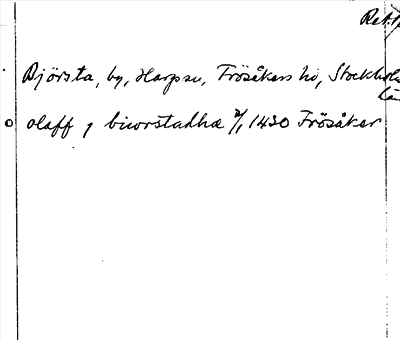 Ret.
Björsta, by, Hargs sn, Frösåkers hd, Stockholms
län
olaff j biworstadha 2/1 1430 Frösåker